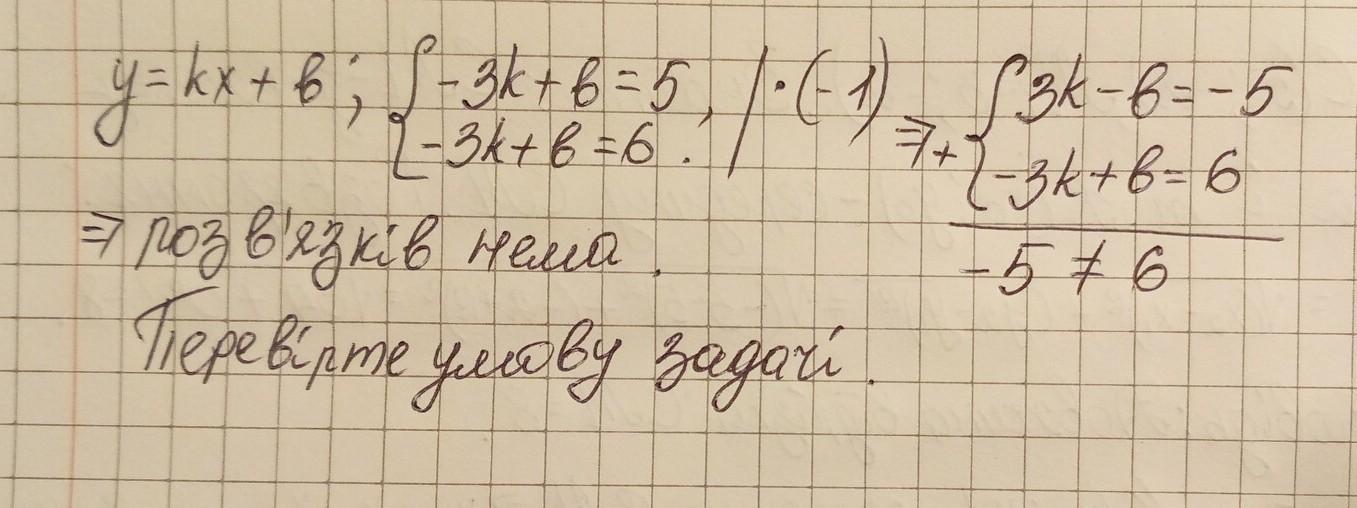 y = kx + b; { -3k + b = 5, | · (-1) ⇒ + { 3k - b = -5
-3k + b = 6. -3k + b = 6
⇒ розв'язків нема. -5 ≠ 6
Перевірте умову задачі.